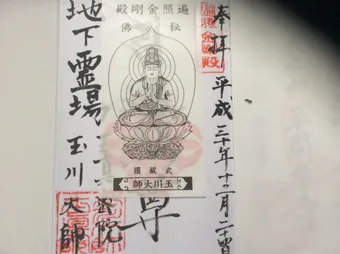 奉拝
平成三十年十二月二十四日
遍照金剛殿
秘佛
武蔵國
玉川大師
尊
地下霊場
玉川
密院
大師